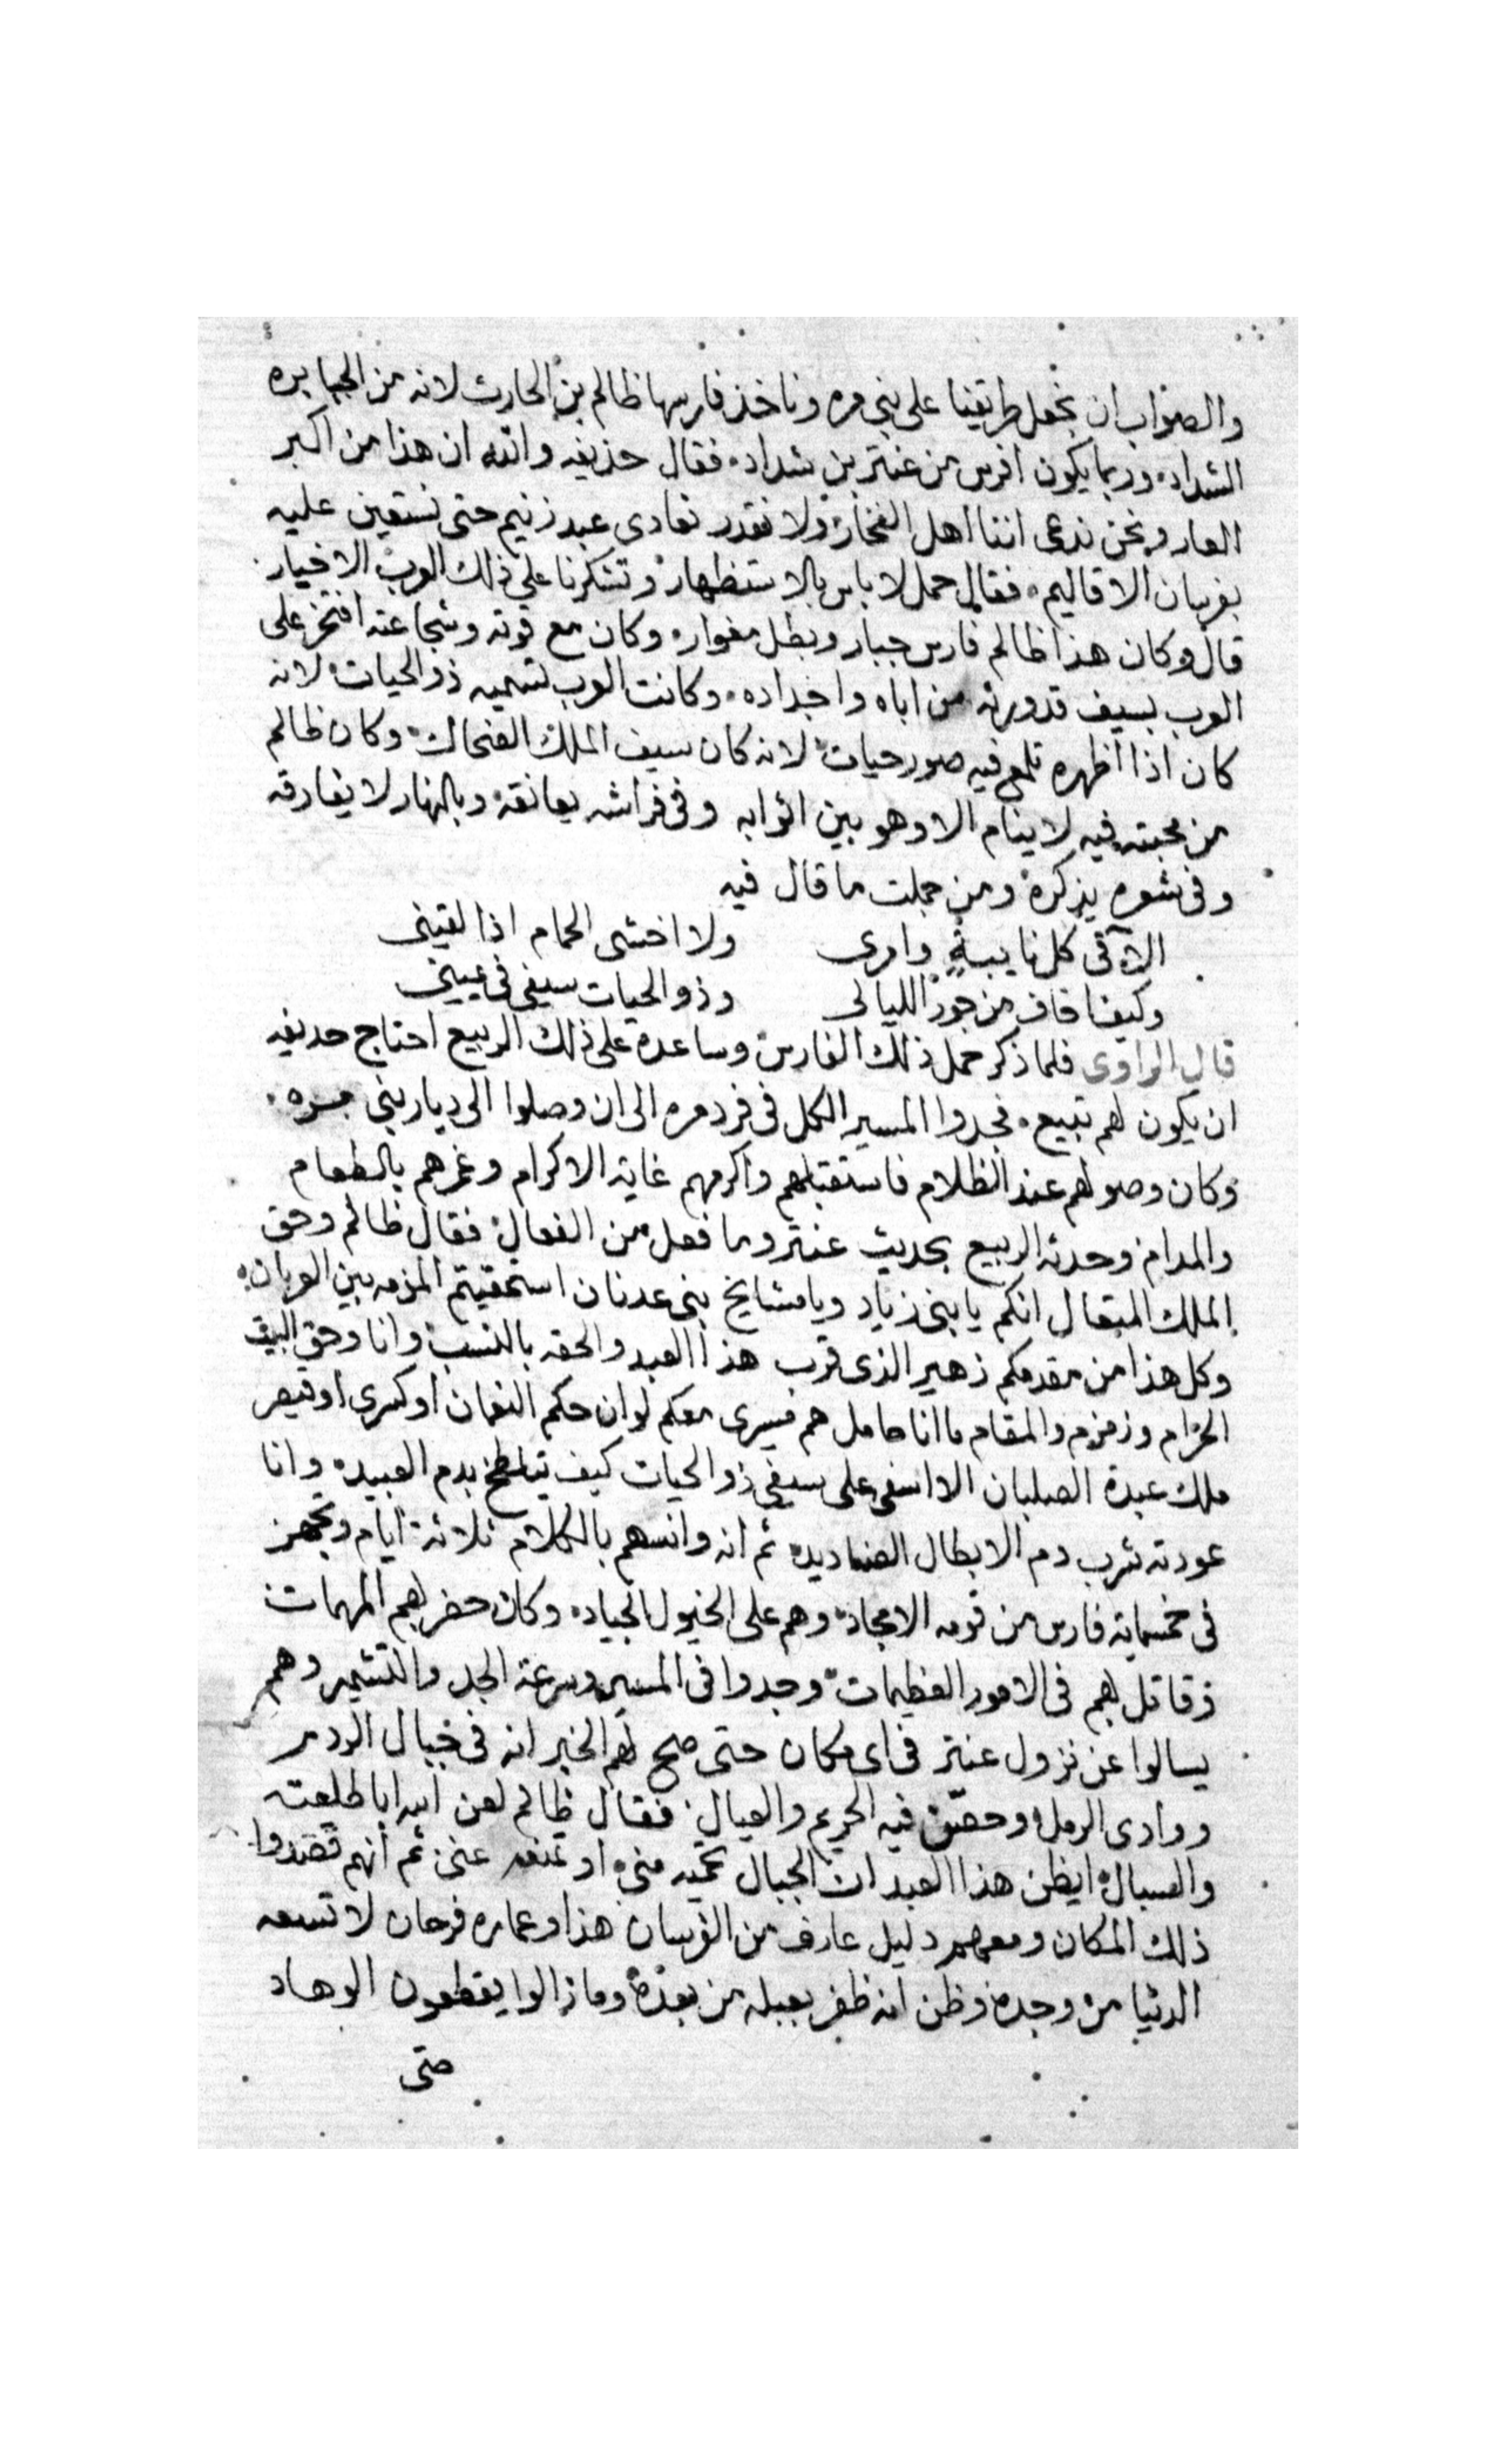 والصواب ان نجعل طريقنا على بنى مره وناخذ فارسها ظالم بن الحارث لانه من الجبابره
الشداد، وربما يكون افرس من عنتر بن شداد، فقال حذيفه والله ان هذا من اكبر
العار ونحن ندعى اننا اهل الفخار ولا نقدر نعادى عبد زنيم حتى نستعين عليه
بفرسان الاقاليم، فقال حمل لا باس بالاستظهار وتشكرنا على ذلك العرب الاخيار
قال وكان هذا ظالم فارس جبار وبطل مغوار، وكان مع قوته وشجاعته افتخر على
العرب بسيف قد ورثه من اباه واجداده، وكانت العرب تسميه ذو الحيات لانه
كان اذا اظهره تلمع فيه صور حيات لانه كان سيف الملك الضحاك وكان ظالم
من محبته فيه لا ينام الا وهو بين اثوابه وفى فراشه يعانقه وبالنهار لا يفارقه
وفى شعره يذكره ومن جملت ما قال فيه
الاقى كل نايبةٍ وامرى ولا اخشى الحمام اذا لقينى
وكيف اخاف من جور الليالى وذو الحيات سيفى فى يمينى
قال الراوى فلما ذكر حمل ذلك الفارس وساعده على ذلك الربيع احتاج حديفه
ان يكون لهم تبيع، فجدوا المسير الكل فى فرد مره الى ان وصلوا الى ديار بنى مره،
وكان وصولهم عند الظلام فاستقبلهم واكرمهم غاية الاكرام وغمرهم بالطعام
والمدام وحدثه الربيع بحديث عنتر وما فعل من الفعال فقال ظالم وحق
الملك المتعال انكم يا بنى زياد ويا مشايخ بنى عدنان استحقيتم المزمه بين العربان،
وكل هذا من مقدمكم زهير الذى قرب هذا العبد والحقه بالنسب وانا وحق البيت
الحرام وزمزم والمقام ما انا حامل هم مسيرى معكم لو ان حكم النعمان او كسرى او قيصر
ملك عبدة الصلبان الا اسفى على سيفى ذو الحيات كيف يتلطخ بدم العبيد، وانا
عودته شرب دم الابطال الصناديد، ثم انه وانسهم بالكلام ثلاثة ايام وتجهز
فى خمسماية فارس من قومه الامجاد، وهم على الخيول الجياد، وكان حضر لهم المهمات
وقاتل لهم فى الامور العظيمات وجدوا فى المسير وسرعة الجد والتشمير وهم
يسالوا عن نزول عنتر فى اى مكان حتى صح لهم الخبر انه فى جبال الردم
ووادى الرمل وحصّن فيه الحريم والعيال، فقال ظالم لعن ابيه ابا طلعته
والسبال ايظن هذا العبد ان الجبال تحميه منى او تمنعه عنى ثم انهم قصدوا
ذلك المكان ومعهم دليل عارف من الفرسان هذا وعماره فرحان لا تسعه
الدنيا من وجده وظن انه ظفر بعبله من بعده وما زالوا يقطعون الوهاد
حتى